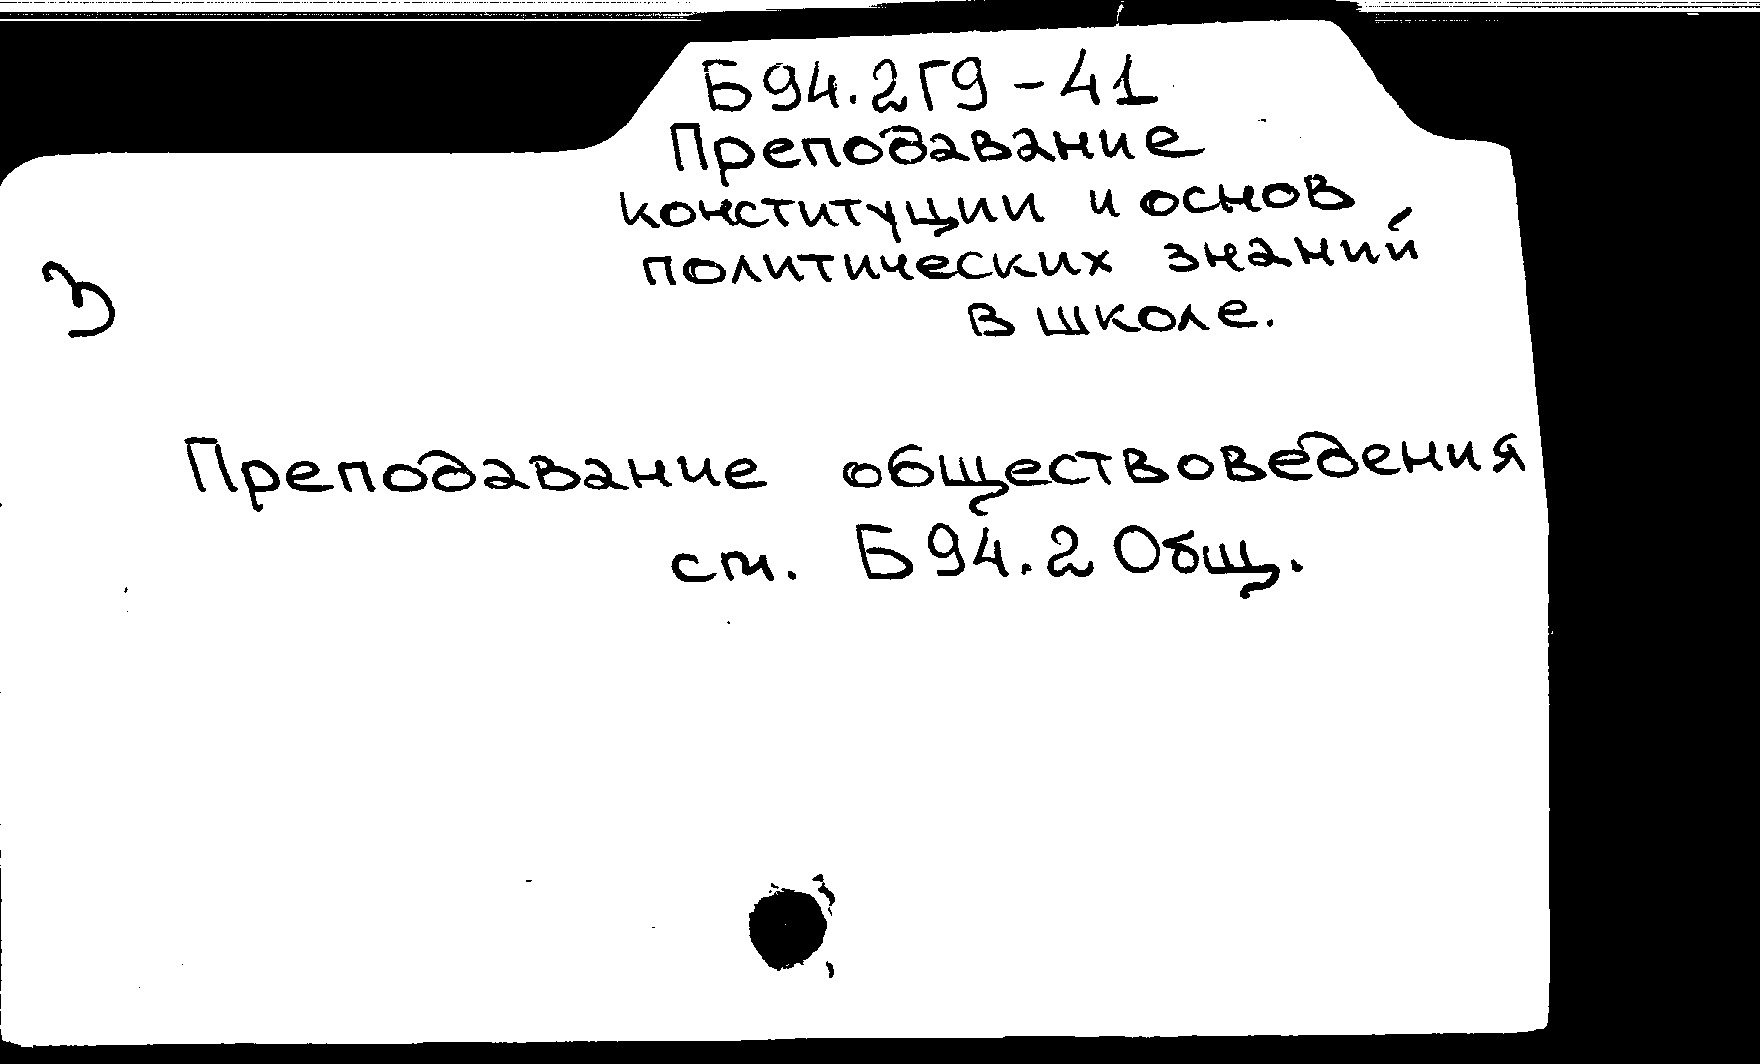 Б94.2Г9-41
Преподавание
конституции и основ
политических знаний
в школе.
З
Преподавание обществоведения
см. Б94.2 Общ.